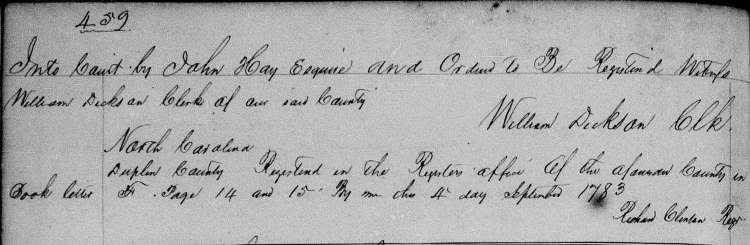 459
Into Court by John Hay Esquire and Ordered to Be Registered Witness
William Dickson Clerk of our said County
William Dickson Clk.
North Carolina
Duplin County Registered in the Registers office of the County in
Book letter F. Page 14 and 15 By me this 4 day September 1783
Richard Clinton Regr